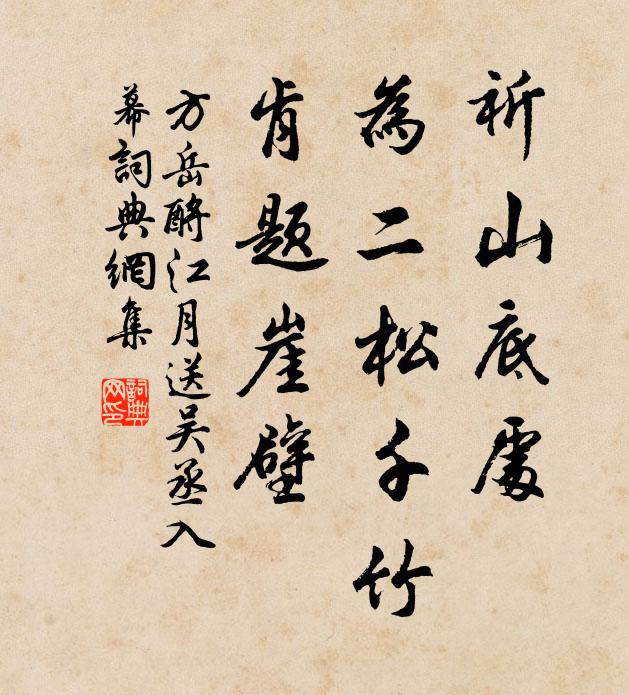 祈山底處
為二松千竹
肯題崖壁
方岳酹江月送吴丞入
幕詞典網集
詞典網印